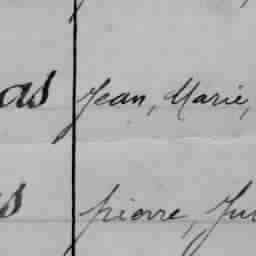 as Jean, Marie,
s pierre, Ju